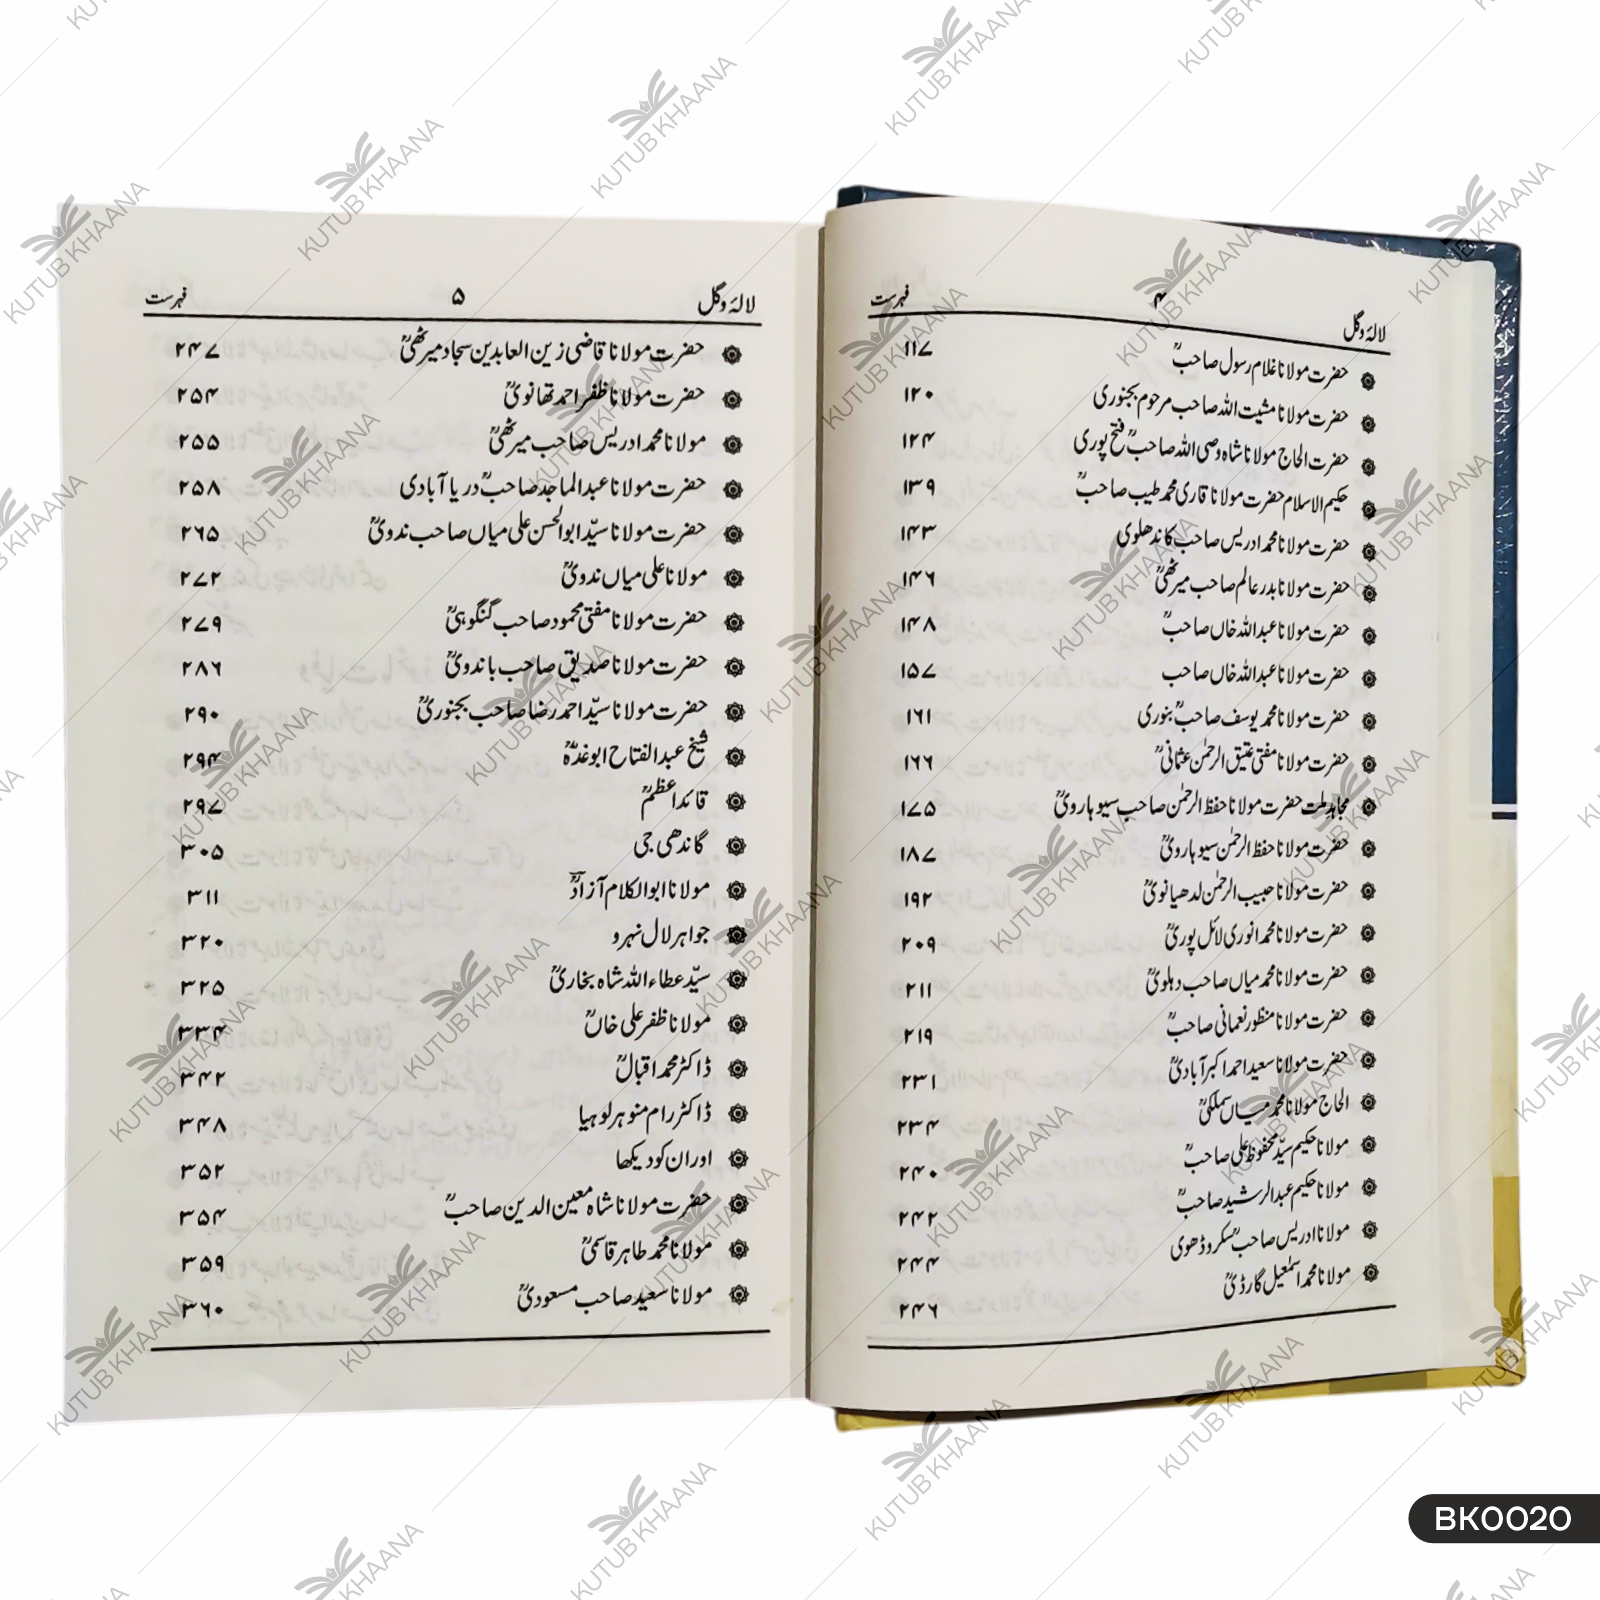 لالۂ وگل ۴ فہرست
حضرت مولانا غلام رسول صاحبؒ ۱۱۷
حضرت مولانا مشیت اللہ صاحب مرحوم بجنوری ۱۲۰
حضرت الحاج مولانا شاہ وصی اللہ صاحبؒ فتح پوری ۱۲۴
حکیم الاسلام حضرت مولانا قاری محمد طیب صاحبؒ ۱۳۹
حضرت مولانا محمد ادریس صاحب کاندھلوی ۱۴۳
حضرت مولانا بدر عالم صاحب میرٹھیؒ ۱۴۶
حضرت مولانا عبداللہ خاں صاحبؒ ۱۴۸
حضرت مولانا عبداللہ خاں صاحب ۱۵۷
حضرت مولانا محمد یوسف صاحبؒ بنوری ۱۶۱
حضرت مولانا مفتی عتیق الرحمٰن عثمانیؒ ۱۶۶
مجاہد ملت حضرت مولانا حفظ الرحمٰن صاحب سیوہارویؒ ۱۷۵
حضرت مولانا حفظ الرحمٰن سیوہارویؒ ۱۸۷
حضرت مولانا حبیب الرحمٰن لدھیانویؒ ۱۹۲
حضرت مولانا محمد انوری لائل پوریؒ ۲۰۹
حضرت مولانا محمد میاں صاحب دہلویؒ ۲۱۱
حضرت مولانا منظور نعمانی صاحبؒ ۲۱۹
حضرت مولانا سعید احمد اکبرآبادیؒ ۲۳۱
الحاج مولانا محمد میاں سملکیؒ ۲۳۴
مولانا حکیم سیّد محفوظ علی صاحبؒ ۲۴۰
مولانا حکیم عبدالرشید صاحبؒ ۲۴۲
مولانا ادریس صاحبؒ سکروڈھوی ۲۴۴
مولانا محمد اسمٰعیل گارڈیؒ ۲۴۶
لالۂ وگل ۵ فہرست
حضرت مولانا قاضی زین العابدین سجاد میرٹھیؒ ۲۴۷
حضرت مولانا ظفر احمد تھانویؒ ۲۵۴
مولانا محمد ادریس صاحب میرٹھیؒ ۲۵۵
حضرت مولانا عبدالماجد صاحبؒ دریا آبادی ۲۵۸
حضرت مولانا سیّد ابوالحسن علی میاں صاحب ندویؒ ۲۶۵
مولانا علی میاں ندویؒ ۲۷۲
حضرت مولانا مفتی محمود صاحب گنگوہیؒ ۲۷۹
حضرت مولانا صدیق صاحب باندویؒ ۲۸۶
حضرت مولانا سیّد احمد رضا صاحب بجنوریؒ ۲۹۰
شیخ عبدالفتاح ابوغدہؒ ۲۹۴
قائد اعظمؒ ۲۹۷
گاندھی جی ۳۰۵
مولانا ابوالکلام آزادؒ ۳۱۱
جواہر لال نہرو ۳۲۰
سیّد عطاء اللہ شاہ بخاریؒ ۳۲۵
مولانا ظفر علی خاںؒ ۳۳۴
ڈاکٹر محمد اقبالؒ ۳۴۲
ڈاکٹر رام منوہر لوہیا ۳۴۸
اور ان کو دیکھا ۳۵۲
حضرت مولانا شاہ معین الدین صاحبؒ ۳۵۴
مولانا محمد طاہر قاسمیؒ ۳۵۹
مولانا سعید صاحب مسعودیؒ ۳۶۰
BK0020
KUTUB KHAANA